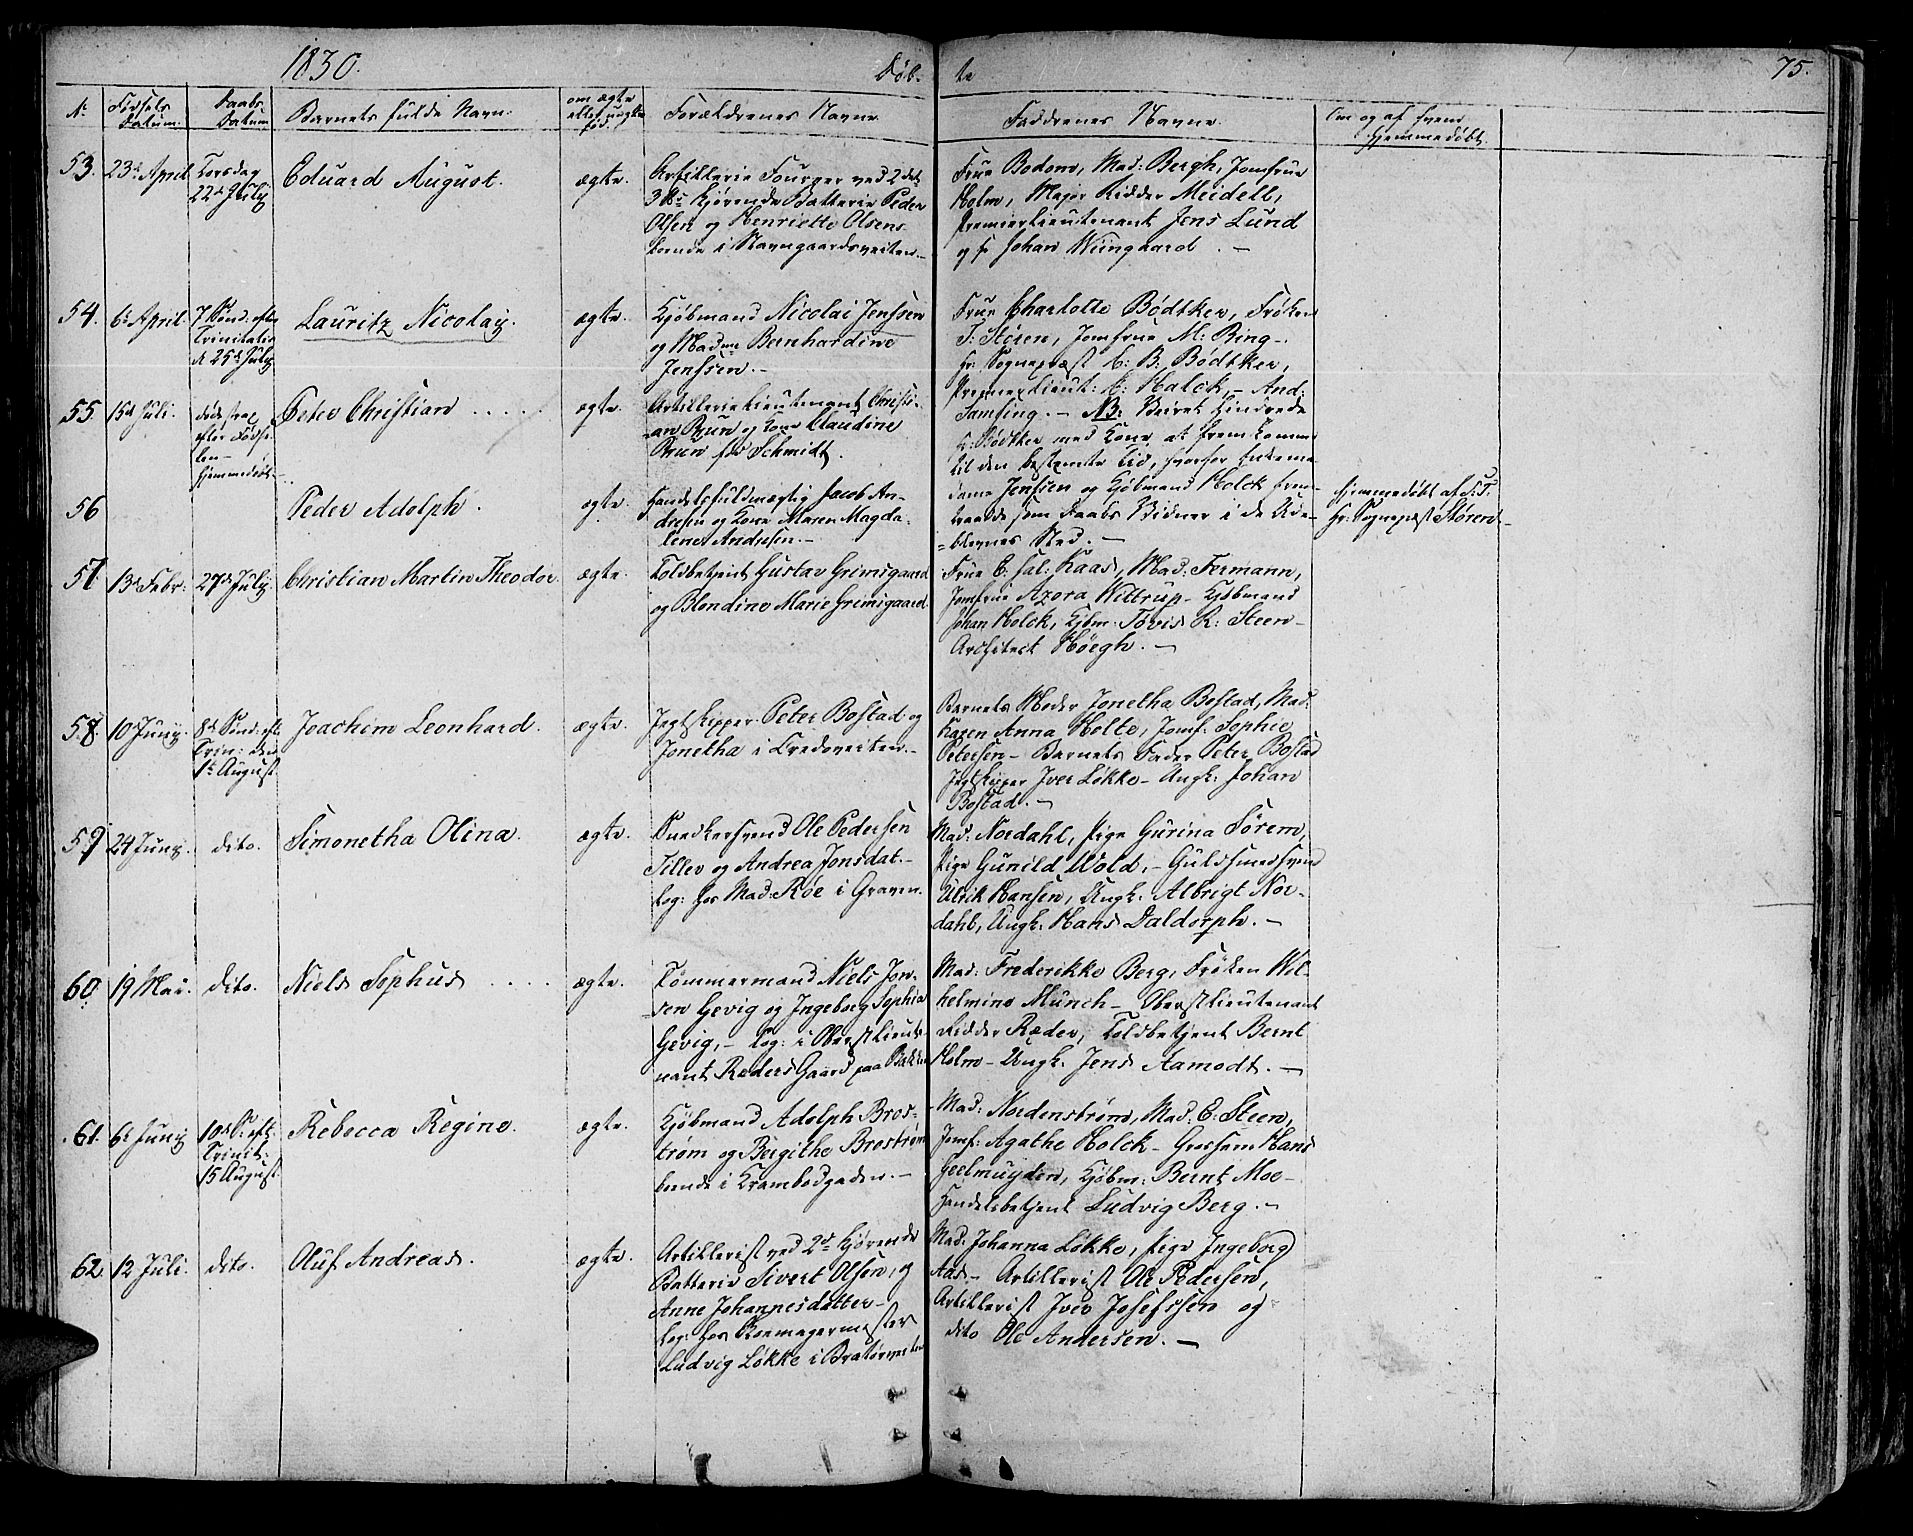 1830.
Døb-
te
75.
N:
Fødsels
Datum.
Daabs
Datum
Barnets fulde Navn.
om ægte
eller uægte
fød.
Forældrenes Navne
Faddrenes Navne.
Om og af hvem
hjemmedøbt.
53.
23de April.
Torsdag
22de July
Eduard August.
ægte.
Artillerie Foureer ved 2det
3 # Kjørende Batterie Peder
Olsen og Henriette Olsen
boende i Navngaardsveiten.-
Frue Bodom, Mad: Bergh, Jomfrue
Holm, Major Ridder Meidell,
Premierlieutenant Jens Lund
og Hr Johan Wiingaard. -
54.
6te April.
7 Sønd: efter
Trinitatis
d 25de July
Lauritz Nicolay.
ægte.
Kjøbmand Nicolai Jenssen
og Madme Bernhardine
Jenssen.-
Frue Charlotte Bødtker, Frøken
T: Støren, Jomfrue M: Bing-
Hr: Sognepræst C: B: Bødtker,
Premierlieut: C: Halck,- And:
Samsing.- NB: Veiret hindrede
H: Bødtker med Kone at fremkomme
til den bestemte Tid, hvorfor Enkema-
dame Jenssen og Kjøbmand Holck frem-
traadte som Daabs Vidner i de Ude-
blevnes Sted.-
55.
15de Juli.
døde strax
efter Fødse-
len-
hjemmedøbt-
Peter Christian .....
ægte.
Artillerielieutenant Christi-
an Brun og Kone Claudine
Brun fød Schmidt.
56
Peder Adolph.
ægte.
Handelsfuldmægtig Jacob An-
dresen og Kone Maren Magda-
lene Andresen.-
hjemmedøbt af S:T:
Hr: Sognepræst Støren-
57
13de Febr:
27de July.
Christian Martin Theodor.
ægte.
Toldbetjent Gustav Grimsgaard
og Blondine Marie Grimsgaard.
Frue E: sal: Kaas, Mad: Fermann,
Jomfrue Azora Wittrup- Kjøbmand
Johan Holck, Kjøbm: Tovis R: Steen-
Architect Høegh.-
58.
10de Juny.
8de Sønd: eft:
Trin: den
1te August
Joachim Leonhard.
ægte.
Jegtskipper Peter Bostad og
Jonetha i Credoveiten.-
Barnets Moder Jonetha Bostad, Mad:
Karen Anna Holte, Jomf: Sophie
Petersen- Barnets Fader Peter Bostad
Jegtskipper Iver Løkke- Ungk: Johan
Bostad.-
59
24 Juny.
dito.
Simonetha Olina.
ægte.
Snedkersvend Ole Pedersen
Tiller og Andrea Jonsdat.-
log: hos Mad: Røe i Graven.
Mad: Nordahl, Pige Gurina Sørem,
Pige Gunild Wold,- Guldsmedsvend
Ulrik Hansen, Ungk: Albrigt Nor-
dahl, Ungk: Hans Daldorph.-
60.
19 Mai.
dito.
Niels Sophus ....
ægte.
Tømmermand Niels Jon-
sen Gevig og Ingeborg Sophia
Gevig,- log: i Oberstlieute-
nant Ræders Gaard paa Bakken
Mad: Frederikke Berg, Frøken Wil-
helmine Münch- Oberstlieutenant
Ridder Ræder, Toldbetjent Bernt
Holm- Ungk. Jens Aamodt.-
61.
6te Juny
10de S: eft:
Trinit:
15 August.
Rebecca Regine.
ægte.
Kjøbmand Adolph Bros-
trøm og Bergithe Brostrøm
boende i Krambodgaden.-
Mad: Nordenstrøm, Mad. E: Steen,
Jomf: Agathe Holck- Grosserer Hans
Geelmuyden, Kjøbm: Bernt Moe-
Handelsbetjent Ludvig Berg.-
62.
12 Juli.
dito.
Oluf Andreas.
ægte.
Artillerist ved 2de Kjørende
Batterie Sivert Olsen, og
Anne Johannesdatter-
log: hos Rormagermester
Ludvig Løkke i Bratørveiten
Mad: Johanna Løkke, Pige Ingeborg
Aas- Artillerist Ole Pedersen,
Artillerist Iver Josefssen og
dito Ole Andersen.-